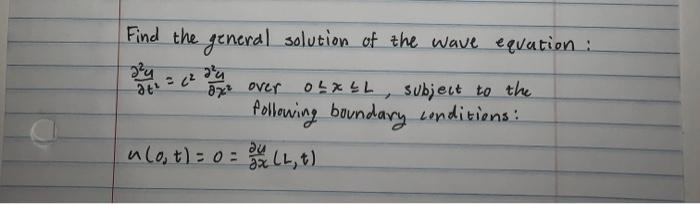 Find the general solution of the wave equation :
∂²u/∂t² = c² ∂²u/∂x² over 0 ≤ x ≤ L, subject to the
following boundary conditions:
u(0,t) = 0 = ∂u/∂x (L,t)